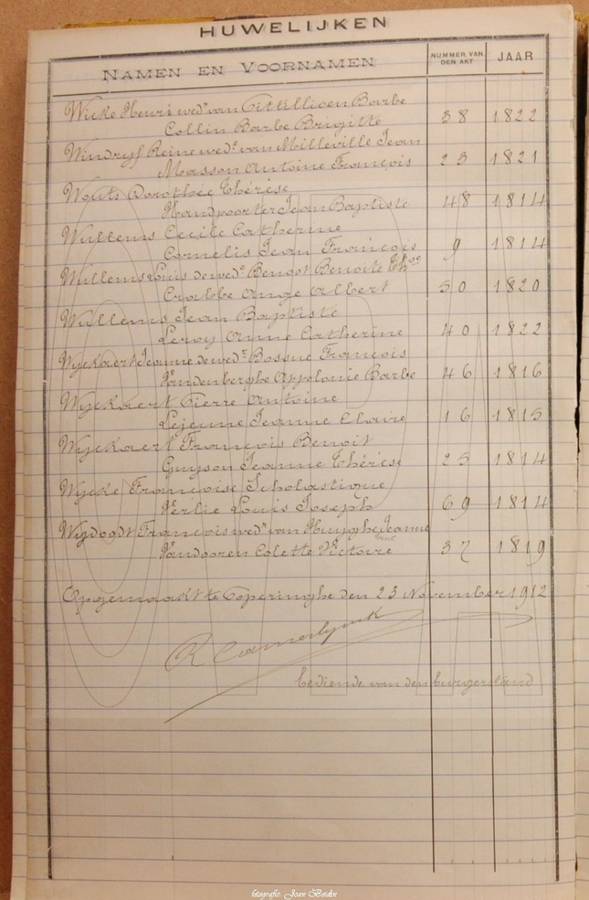 HUWELIJKEN
NAMEN EN VOORNAMEN NUMMER VAN DEN AKT JAAR
Wicke Henri wedr van Barbe
Collin Barbe Brigitte 38 1822
Windryf Reine wede van Milleville Jean
Masson Antoine François 23 1821
Wouts Dorothée Thérèse
Handpoorter Jean Baptiste 48 1814
Wullems Cecile Catherine
Cornelis Jean François 9 1814
Willems Louis de wedr Bengot Benoite
Crabbe Ange Albert 50 1820
Wullems Jean Baptiste
Leroy Anne Catherine 40 1822
Wyckaert Jeanne de wede Bossue François
Vandenberghe Appelonie Barbe 46 1816
Wyckaert Pierre Antoine
Lejeune Jeanne Claire 16 1815
Wyckaert François Benoit
Guyson Jeanne Thérèse 25 1814
Wycke Françoise Scholastique
Verlie Louis Joseph 69 1814
Wydoodt François wedr van Huyghe Jeanne
Vandooren Colette Victoire 37 1819
Opgemaakt te Poperinghe den 23 November 1912
bediende van den burgerstand
fotografie: Joan Boidin